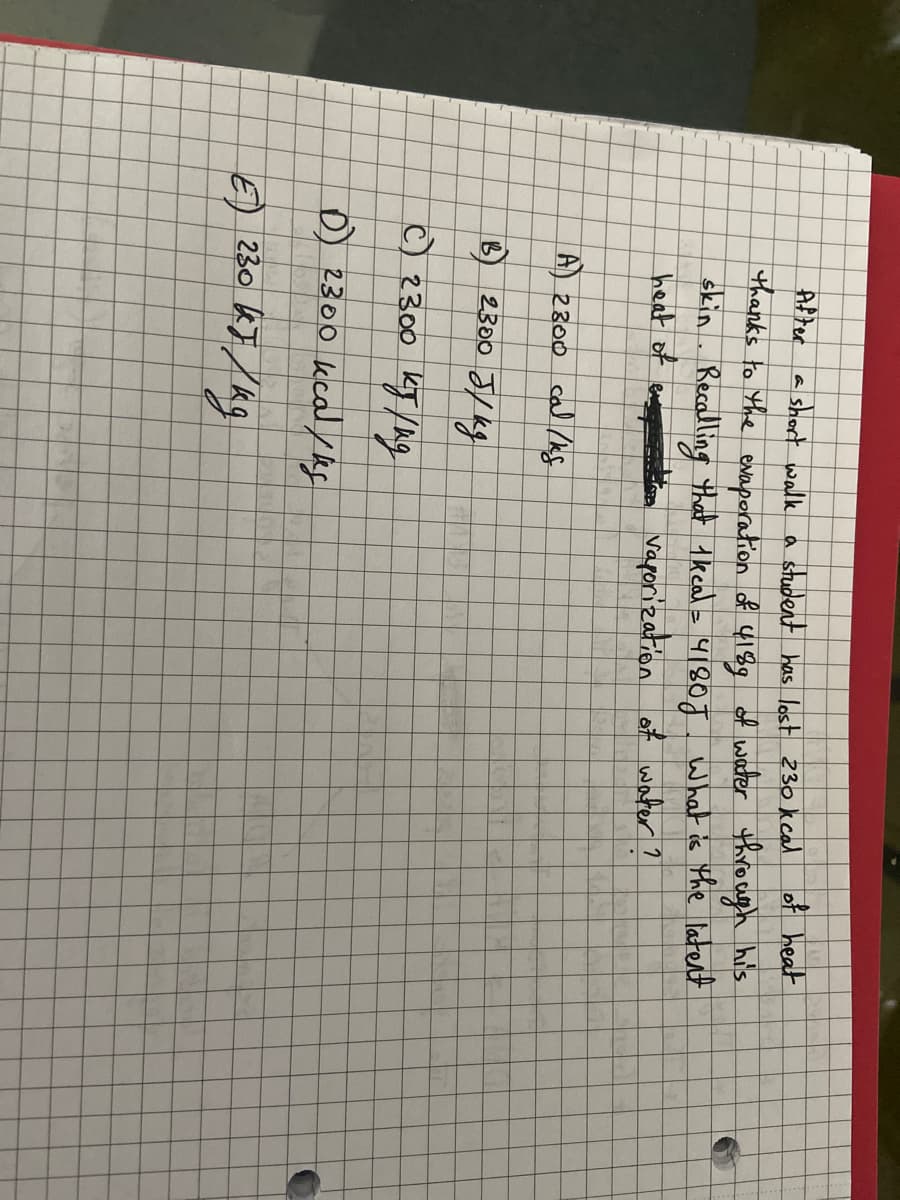 After a short walk a student has lost 230 kcal of heat
thanks to the evaporation of 418g of water through his
skin. Recalling that 1kcal = 4180J. What is the latent
heat of vaporization of water?
A) 2300 cal/kg
B) 2300 J/kg
C) 2300 kJ/kg
D) 2300 kcal/kg
E) 230 kJ/kg